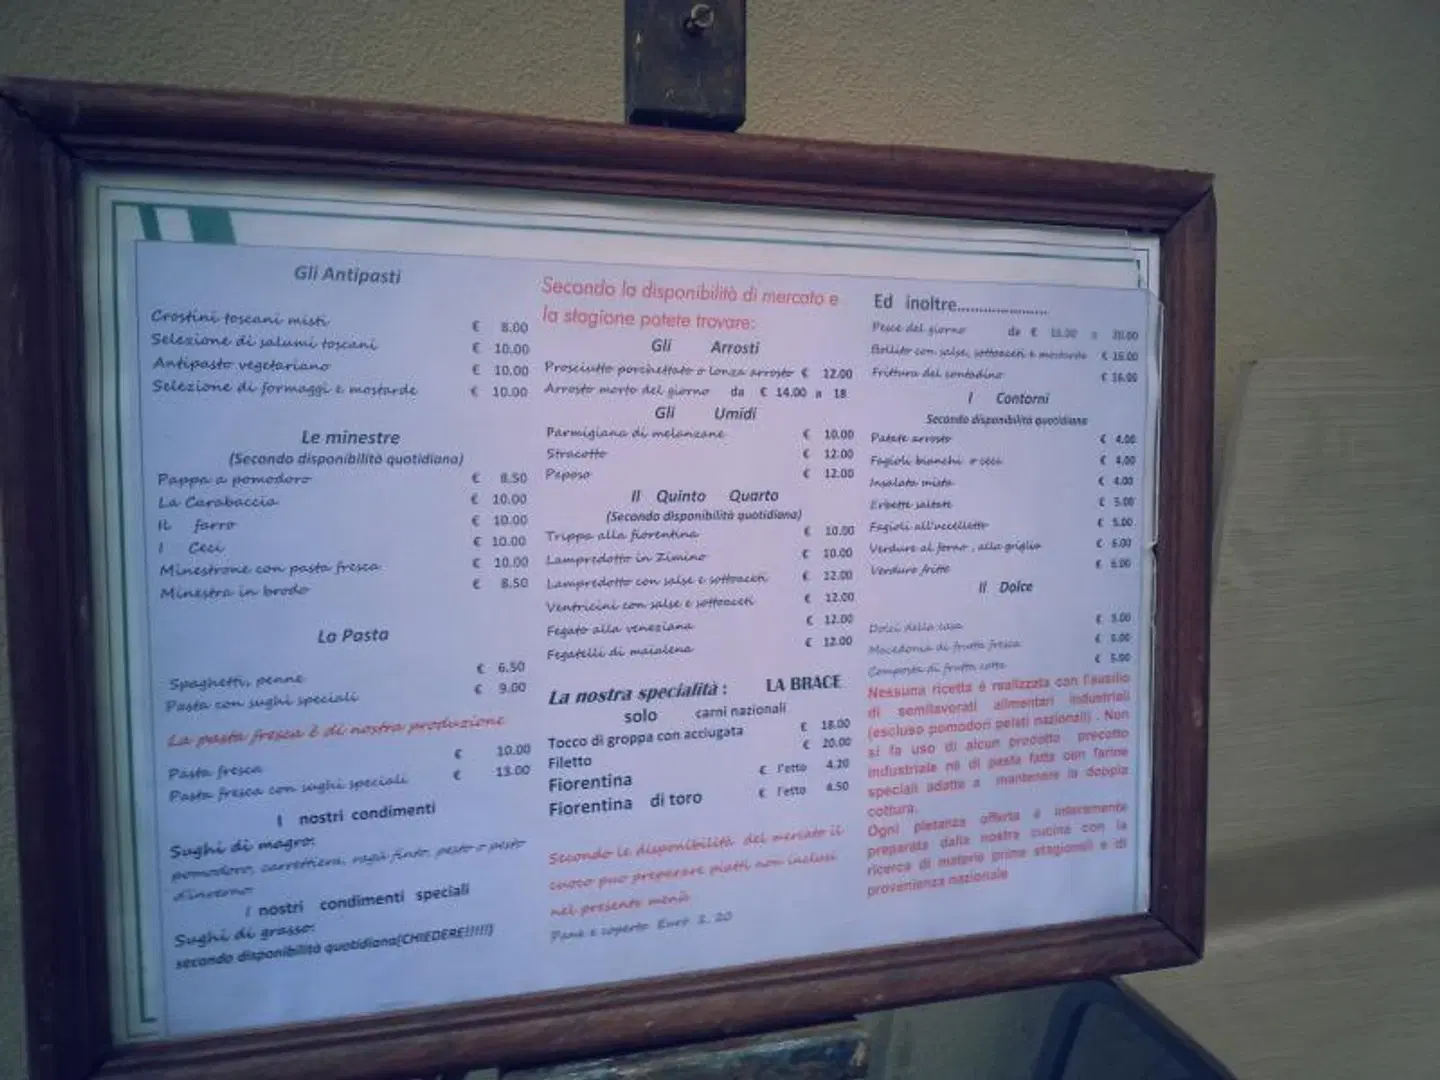 Gli Antipasti
Crostini toscani misti € 8.00
Selezione di salumi toscani € 10.00
Antipasto vegetariano € 10.00
Selezione di formaggi e mostarde € 10.00
Le minestre
(Secondo disponibilità quotidiana)
Pappa a pomodoro € 8.50
La Carabaccia € 10.00
IL farro € 10.00
I Ceci € 10.00
Minestrone con pasta fresca € 10.00
Minestra in brodo € 8.50
La Pasta
Spaghetti, penne € 6.50
Pasta con sughi speciali € 9.00
La pasta fresca è di nostra produzione
Pasta fresca € 10.00
Pasta fresca con sughi speciali € 13.00
I nostri condimenti
Sughi di magro:
pomodoro, carrettiera, ragù finto, pesto o pesto
d'inverno
I nostri condimenti speciali
Sughi di grasso:
secondo disponibilità quotidiana(CHIEDERE!!!!!)
Secondo la disponibilità di mercato e
la stagione potete trovare:
Gli Arrosti
Prosciutto porchettato o lonza arrosto € 12.00
Arrosto morto del giorno da € 14.00 a 18
Gli Umidi
Parmigiana di melanzane € 10.00
Stracotto € 12.00
Peposo € 12.00
Il Quinto Quarto
(Secondo disponibilità quotidiana)
Trippa alla fiorentina € 10.00
Lampredotto in Zimino € 10.00
Lampredotto con salse e sottoaceti € 12.00
Ventricini con salse e sottoaceti € 12.00
Fegato alla veneziana € 12.00
Fegatelli di maialena € 12.00
La nostra specialità : LA BRACE
solo carni nazionali
Tocco di groppa con acciugata € 18.00
Filetto € 20.00
Fiorentina € l'etto 4.20
Fiorentina di toro € l'etto 4.50
Secondo le disponibilità del mercato il
cuoco può preparare piatti non inclusi
nel presente menù
Pane e coperto Euro 2. 20
Ed inoltre......................
Pesce del giorno da € a 20.00
Bollito con salse, sottoaceti e mostarde € 16.00
Frittura del contadino € 16.00
I Contorni
Secondo disponibilità quotidiana
Patate arrosto € 4.00
Fagioli bianchi o ceci € 4.00
Insalata mista € 4.00
Erbette saltate € 5.00
Fagioli all'uccelletto € 5.00
Verdure al forno , alla griglia € 6.00
Verdure fritte € 6.00
Il Dolce
Dolci della casa € 5.00
Macedonia di frutta fresca € 5.00
Composta di frutta cotta € 5.00
Nessuna ricetta è realizzata con l'ausilio
di semilavorati alimentari industriali
(escluso pomodori pelati nazionali) . Non
si fa uso di alcun prodotto precotto
industriale né di pasta fatta con farine
speciali adatte a mantenere la doppia
cottura.
Ogni pietanza offerta è interamente
preparata dalla nostra cucina con la
ricerca di materie prime stagionali e di
provenienza nazionale